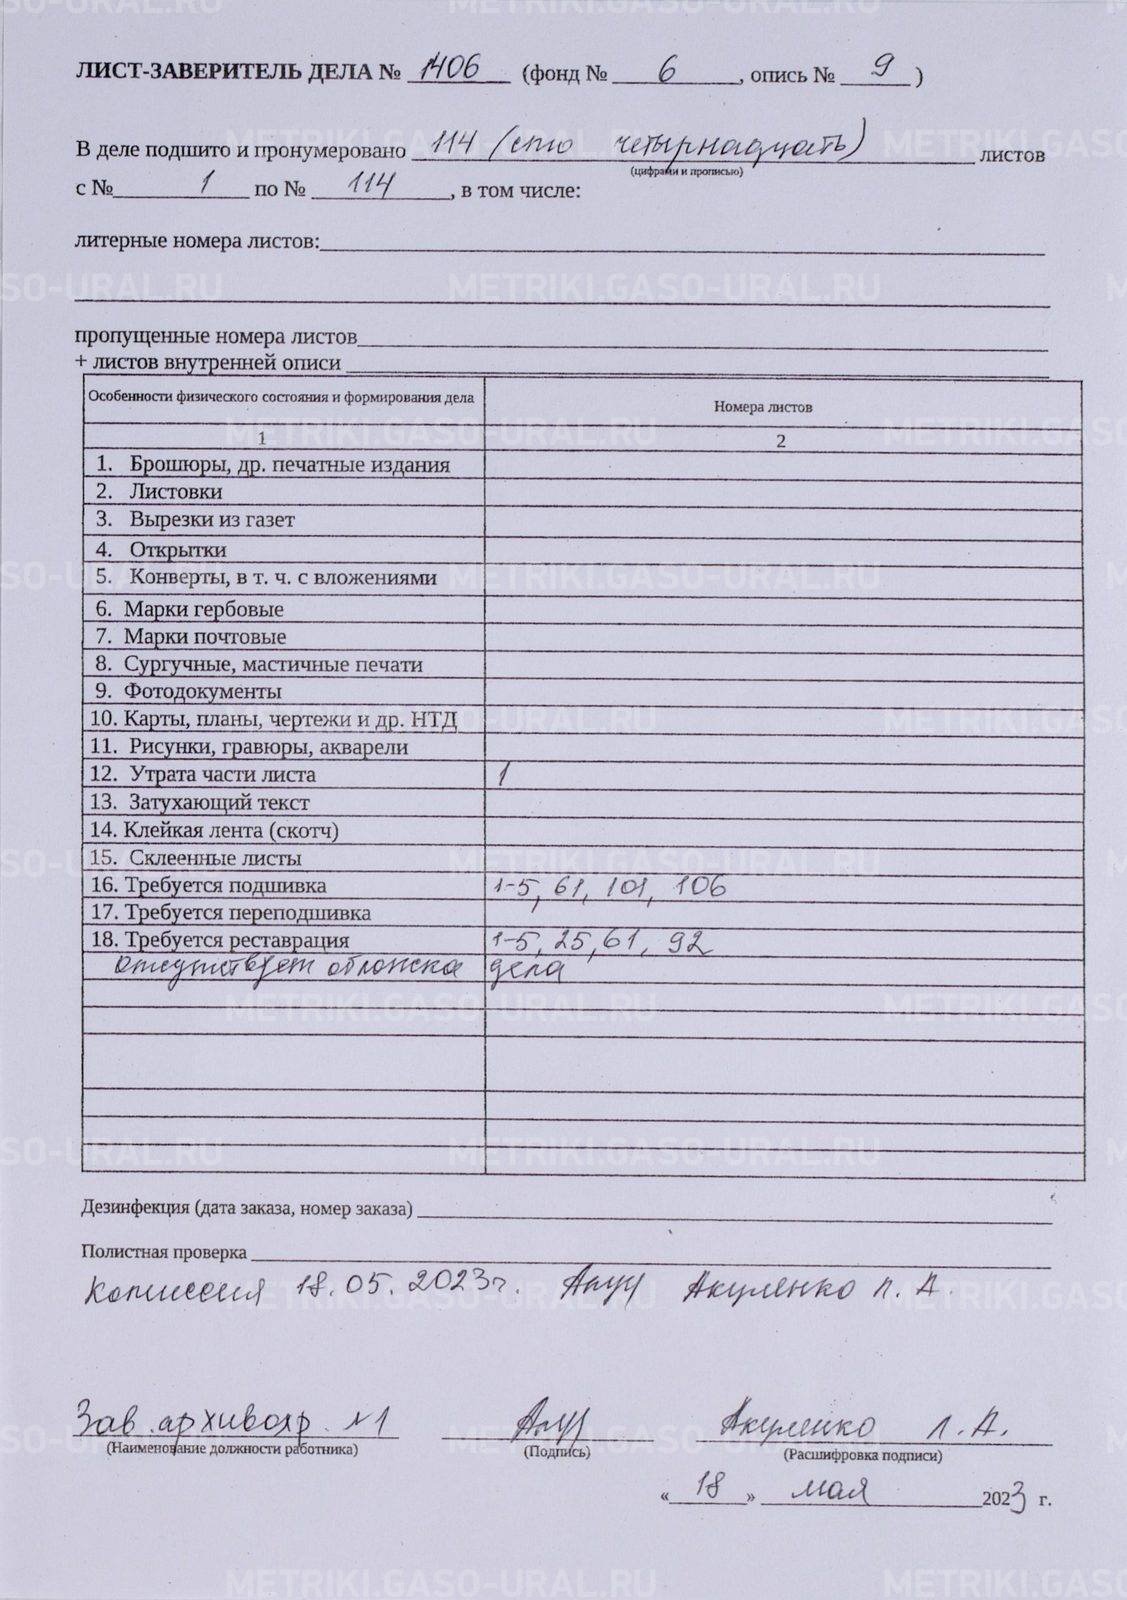 ЛИСТ-ЗАВЕРИТЕЛЬ ДЕЛА № 1406 (фонд № 6, опись № 9)
В деле подшито и пронумеровано 114 (сто четырнадцать) листов
(цифрами и прописью)
с № 1 по № 114, в том числе:
литерные номера листов:
пропущенные номера листов
+ листов внутренней описи
Особенности физического состояния и формирования дела Номера листов
1 2
1. Брошюры, др. печатные издания
2. Листовки
3. Вырезки из газет
4. Открытки
5. Конверты, в т. ч. с вложениями
6. Марки гербовые
7. Марки почтовые
8. Сургучные, мастичные печати
9. Фотодокументы
10. Карты, планы, чертежи и др. НТД
11. Рисунки, гравюры, акварели
12. Утрата части листа 1
13. Затухающий текст
14. Клейкая лента (скотч)
15. Склеенные листы
16. Требуется подшивка 1-5, 61, 101, 106
17. Требуется переподшивка
18. Требуется реставрация 1-5, 25, 61, 92
отсутствует обложка дела
Дезинфекция (дата заказа, номер заказа)
Полистная проверка
Комиссия 18.05.2023г. Акуленко Л. А.
Зав. архивохр. №1 Акуленко Л. А.
(Наименование должности работника) (Подпись) (Расшифровка подписи)
« 18 » мая 2023 г.
METRIKI.GASO-URAL.RU